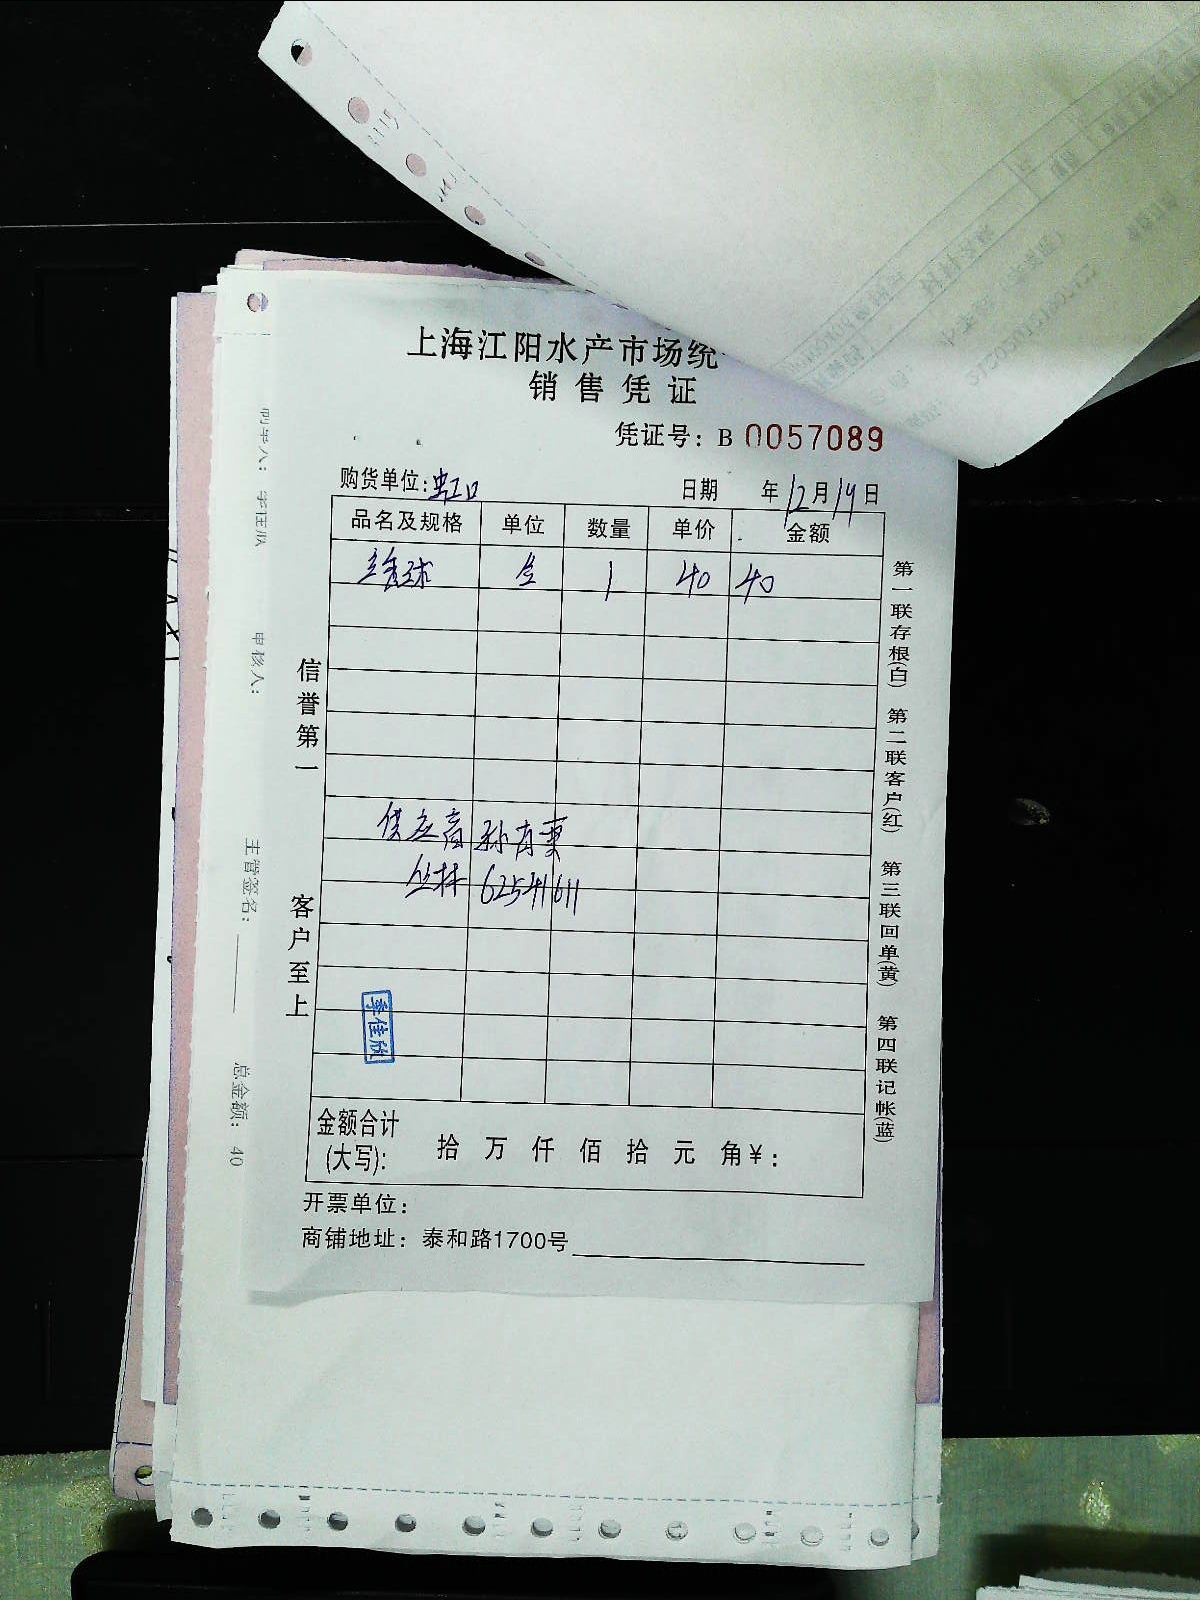 上海江阳水产市场统
销售凭证
凭证号：B 0057089
购货单位：虹口 日期 年12月19日
品名及规格 单位 数量 单价 金额
1 40 40
供应商 孙有
丛林 62541611
李佳欣
金额合计(大写)： 拾 万 仟 佰 拾 元 角￥：
开票单位：
商铺地址：泰和路1700号
信誉第一 客户至上
第一联存根(白) 第二联客户(红) 第三联回单(黄) 第四联记帐(蓝)
制单人：李佳欣 审核人： 主管签名： 总金额：40